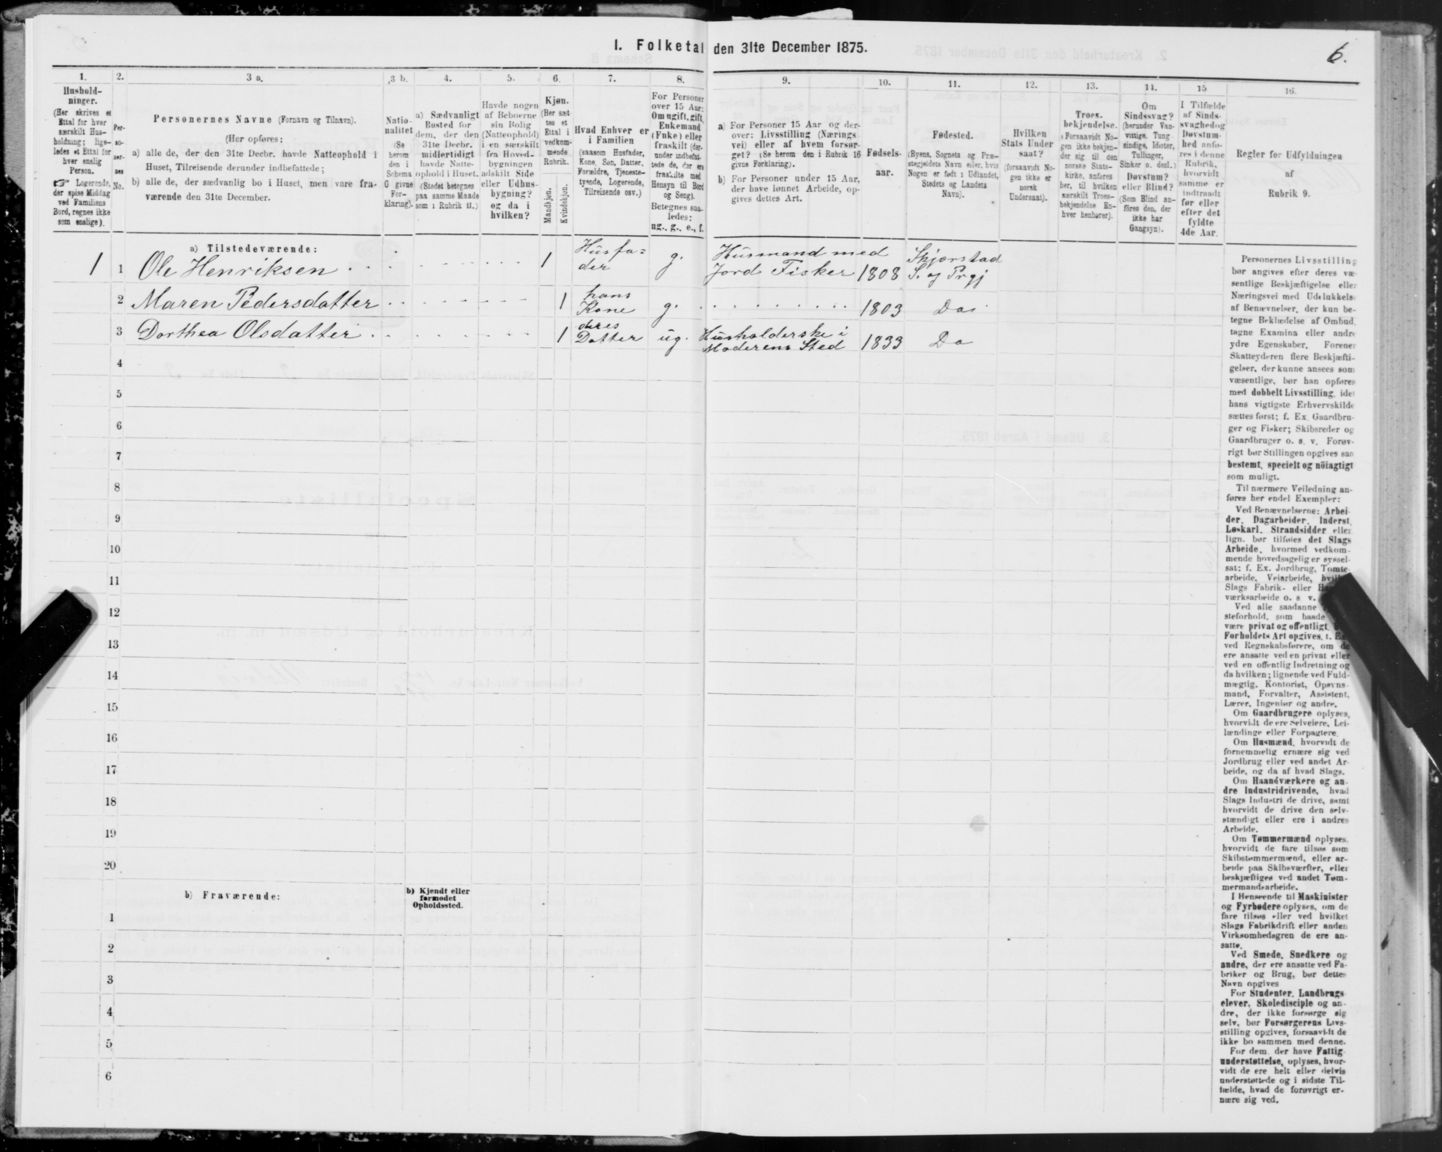 I. Folketal den 31te December 1875.
6.
1. 2. 3 a. 3 b. 4. 5. 6. 7. 8. 9. 10. 11. 12. 13. 14. 15 16.
Hushold-
ninger.
(Her skrives et
Ettal for hver
særskilt Hus-
holdning; lige-
ledes et Ettal for
hver enslig
Person.
☞ Logerende,
der spise Middag
ved Familiens
Bord, regnes ikke
som enslige).
Per-
so-
ner-
nes
No.
Personernes Navne (Fornavn og Tilnavn).
(Her opføres:
a) alle de, der den 31te Decbr. havde Natteophold i
Huset, Tilreisende derunder indbefattede;
b) alle de, der sædvanlig bo i Huset, men vare fra-
værende den 31te December.
Natio-
nalitet
(Se
herom
den i
Schema
G givne
For-
klaring).
a) Sædvanligt
Bosted for
dem, der den
31te Decbr.
midlertidigt
havde Natte-
ophold i Huset.
(Stedet betegnes
paa samme Maade
som i Rubrik 11.)
Havde nogen
af Beboerne
sin Bolig
(Natteophold)
i en særskilt
fra Hoved-
bygningen
adskilt Side
eller Udhus-
bygning?
og da i
hvilken?
Kjøn.
(Her sæt-
tes et
Ettal i
vedkom-
mende
Rubrik.
Mandkjøn.
Kvindekjøn.
Hvad Enhver er
i Familien
(saasom Husfader,
Kone, Søn, Datter,
Forældre, Tjeneste-
tyende, Logerende,
Tilreisende osv.)
For Personer
over 15 Aar:
Om ugift, gift,
Enkemand
(Enke) eller
fraskilt (der-
Betegnes saa-
ledes:
ug., g., e., f.
a) For Personer 15 Aar og der-
over: Livsstilling (Nærings-
vei) eller af hvem forsør-
get? (Se herom den i Rubrik 16
givne Forklaring).
b) For Personer under 15 Aar,
der have lønnet Arbeide, op-
gives dettes Art.
Fødsels-
aar.
Fødested.
(Byens, Sognets og Præ-
stegjeldets Navn eller, hvis
Nogen er født i Udlandet,
Stedets og Landets
Navn).
Hvilken
Stats Under
saat?
(forsaavidt No-
gen ikke er
norsk
Undersaat).
Troes-
bekjendelse.
(Forsaavidt No-
gen ikke bekjen-
der sig til den
norske Stats-
kirke, anføres
her, til hvilken
særskilt Troes-
bekjendelse En-
hver henhører).
Om
Sindssvag?
(herunder Van-
vittige, Tung-
sindige, Idioter,
Tullinger,
Sinker o. desl.)
Døvstum?
eller Blind?
(Som Blind an-
føres den, der
ikke har
Gangsyn).
I Tilfælde
af Sinds-
svaghed og
Døvstum-
hed anfø-
res i denne
Rubrik,
hvorvidt
samme er
indtraadt
før eller
efter det
fyldte
4de Aar.
Regler for Udfyldningen
af
Rubrik 9.
a) Tilstedeværende:
1 1 Ole Henriksen 1 Husfa-
der g. Husmand med
Jord Fisker 1808 Skjerstad
S. og Prgj
2 Maren Pedersdatter 1 hans
Kone g. 1803 Do
3 Dorthea Olsdatter 1 deres
Datter ug. Husholderske i
Moderens Sted 1833 Do
4
5
6
7
8
9
10
11
12
13
14
15
16
17
18
19
20
b) Fraværende:
b) Kjendt eller
formodet
Opholdssted.
1
2
3
4
5
6
Personernes Livsstilling
bør angives efter deres væ-
sentlige Beskjæftigelse eller
Næringsvei med Udelukkelse
af Benævnelser, der kun be-
tegne Beklædelse af Ombud,
tagne Examina eller andre
ydre Egenskaber. Forener
Skatteyderen flere Beskjæfti-
gelser, der kunne ansees som
væsentlige, bør han opføres
med dobbelt Livsstilling, idet
hans vigtigste Erhvervskilde
sættes først; f. Ex. Gaardbru-
ger og Fisker; Skibsreder og
Gaardbruger o. s. v. Forøv-
rigt bør Stillingen opgives saa
bestemt, specielt og nöiagtigt
som muligt.
Til nærmere Veiledning an-
føres her endel Exempler:
Ved Benævnelserne: Arbei-
der, Dagarbeider, Inderst,
Løskarl, Strandsidder eller
lign. bør tilføies det Slags
Arbeide, hvormed vedkom-
mende hovedsagelig er syssel-
sat; f. Ex. Jordbrug, Tomte-
arbeide, Veiarbeide,
Slags Fabrik- eller
værksarbeide o. s. v.
Ved alle saadanne
steforhold, som baade
være privat og offentligt,
Forholdets Art opgives, t. Ex.
ved Regnskabsførere, om de
ere ansatte ved en privat eller
ved en offentlig Indretning og
da hvilken; lignende ved Fuld-
mægtig, Kontorist, Opsyns-
mand, Forvalter, Assistent,
Lærer, Ingeniør og andre.
Om Gaardbrugere oplyses,
hvorvidt de ere Selveiere, Lei-
lændinge eller Forpagtere.
Om Husmænd, hvorvidt de
fornemmelig ernære sig ved
Jordbrug eller ved andet Ar-
beide, og da af hvad Slags.
Om Haandværkere og an-
dre Industridrivende, hvad
Slags Industri de drive, samt
hvorvidt de drive den selv-
stændigt eller ere i andres
Arbeide.
Om Tømmermænd oplyses,
hvorvidt de fare tilsøs som
Skibstømmermænd, eller ar-
beide paa Skibsværfter, eller
beskjæftiges ved andet Tøm-
mermandsarbeide.
I Henseende til Maskinister
og Fyrbødere oplyses, om de
fare tilsøs eller ved hvilket
Slags Fabrikdrift eller anden
Virksomhedsgren de ere an-
satte.
Ved Smede, Snedkere og
andre, der ere ansatte ved Fa-
briker og Brug, bør dettes
Navn opgives
For Studenter, Landbrugs-
elever, Skoledisciple og an-
dre, der ikke forsørge sig
selv, bør Forsørgerens Livs-
stilling opgives, forsaavidt de
ikke bo sammen med denne.
For dem, der have Fattig-
understøttelse, oplyses, hvor-
vidt de ere helt eller delvis
understøttede og i sidste Til-
fælde, hvad de forøvrigt er-
nære sig ved.